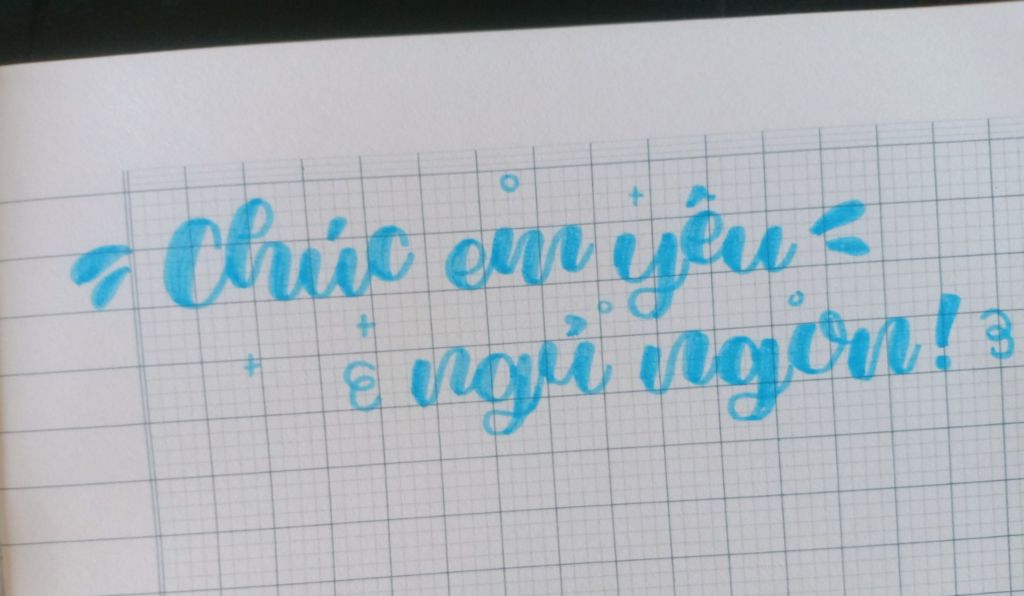 Chúc em yêu
ngủ ngon!